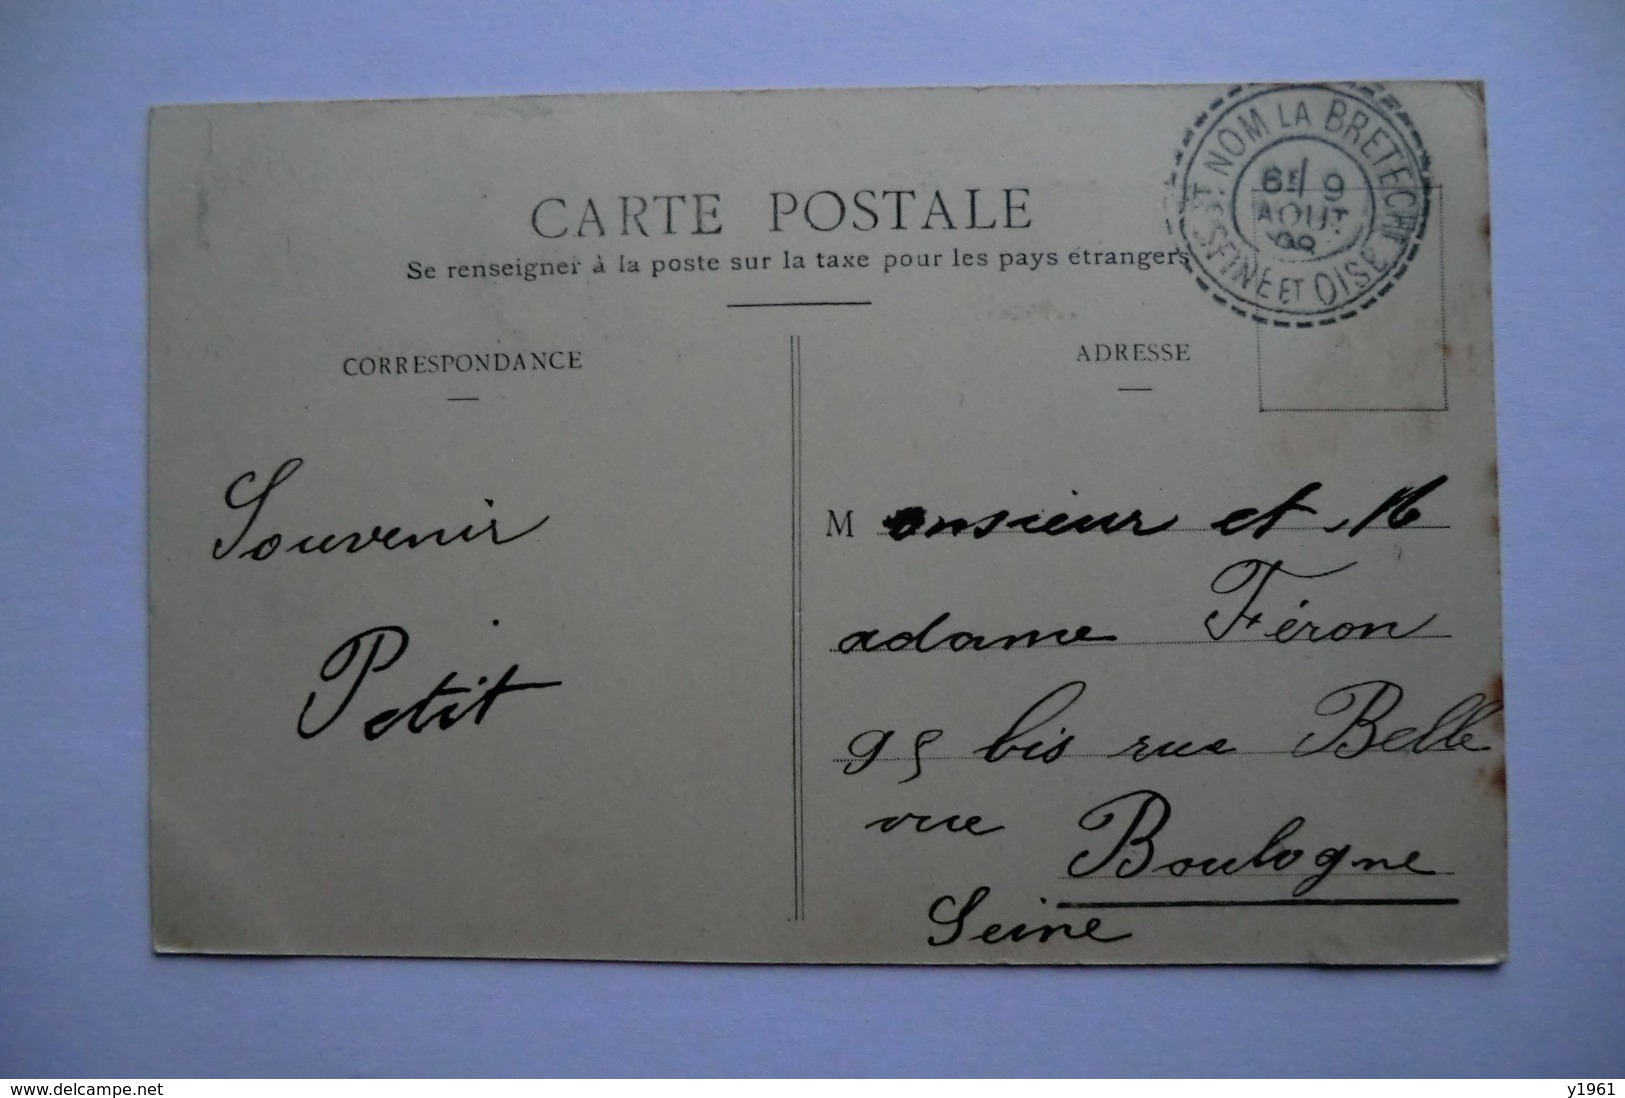 ST NOM LA BRETECHE
6E/ 9
AOUT
09
SEINE ET OISE
CARTE POSTALE
Se renseigner à la poste sur la taxe pour les pays étrangers
CORRESPONDANCE
ADRESSE
Souvenir
Petit
M onsieur et M
adame Féron
95 bis rue Belle
vue Boulogne
Seine
www.delcampe.net
y1961